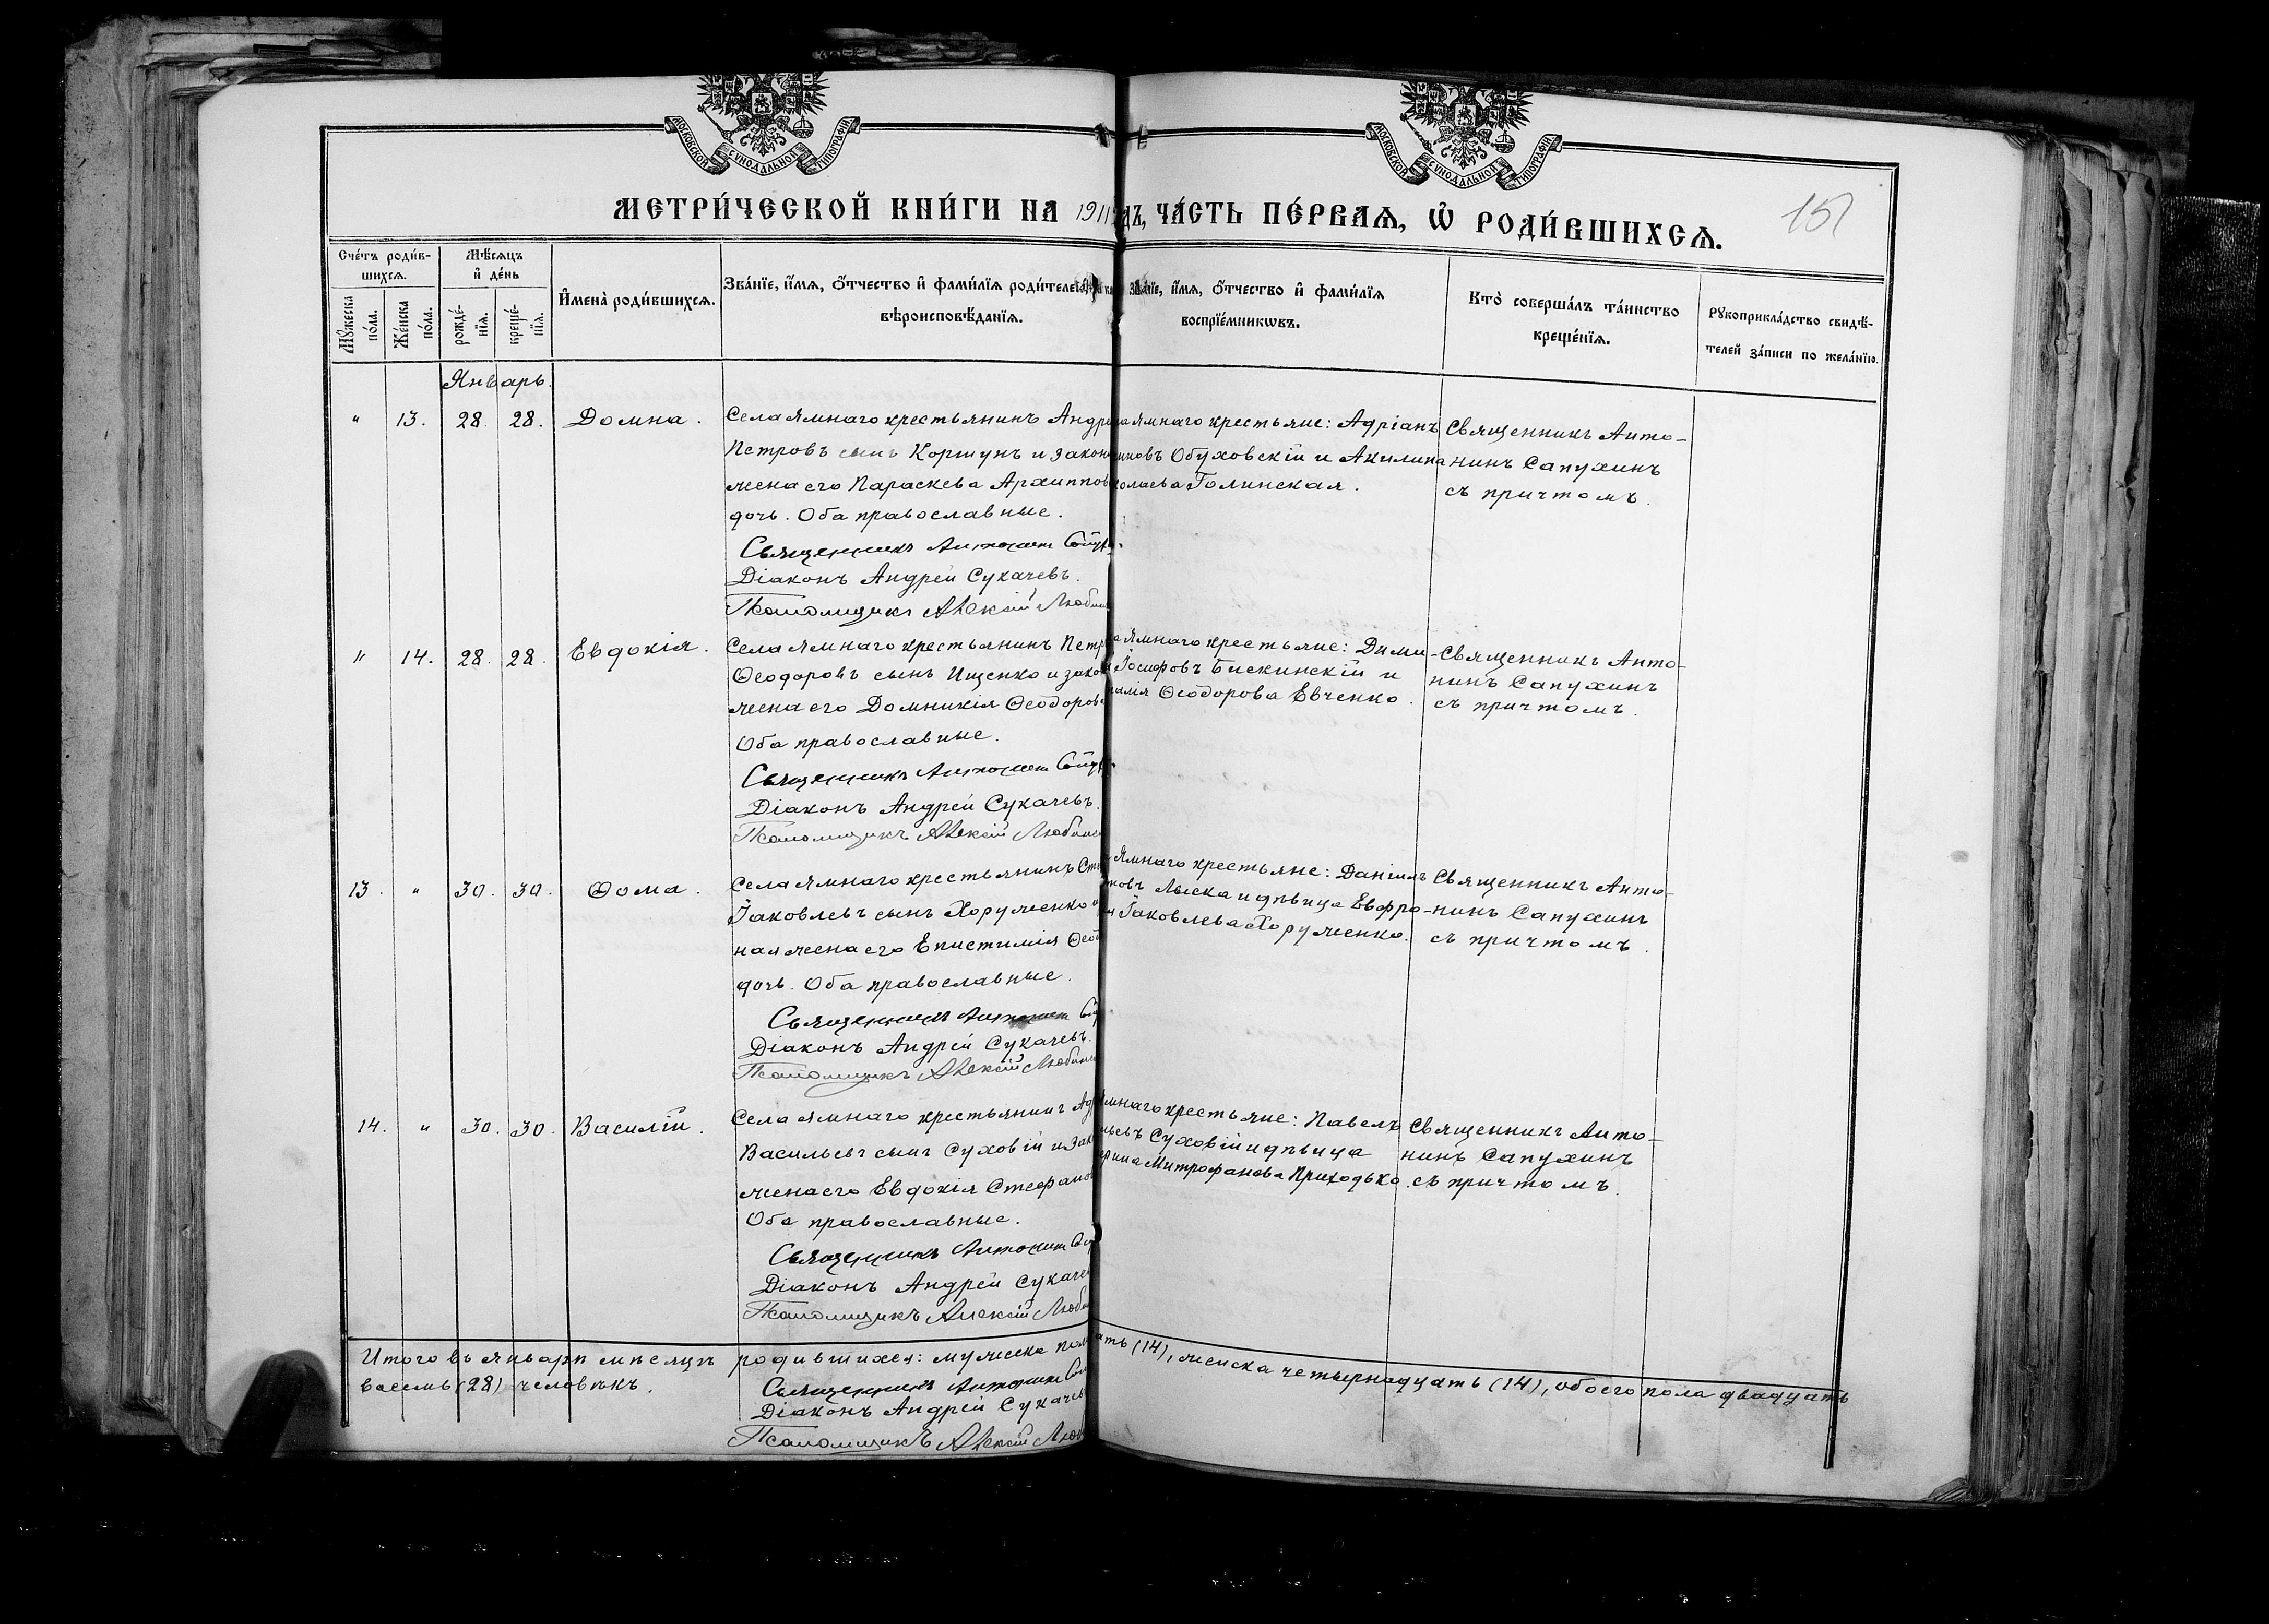 МОСКОВСКОЙ СѴНОДАЛЬНОЙ ТИПОГРАФІИ
МОСКОВСКОЙ СѴНОДАЛЬНОЙ ТИПОГРАФІИ
МЕТРИ́ЧЕСКОЙ КНИ́ГИ НА 1911 ЧА́СТЬ ПЕ́РВАѦ, Ѿ РОДИ́ВШИХСѦ.
151
Сче́тъ роди́в-
шихсѧ.
Мꙋ́жеска по́ла.
Же́нска по́ла.
Мѣ́сѧцъ
и де́нь
рожде́-нїѧ.
креще́-нїѧ.
И҆мена̀ роди́вшихсѧ.
Зва́нїе, и҆́мѧ, ѻ҆́тчество и҆ фами́лїѧ роди́телей,
вѣроисповѣ́данїѧ.
Зва́нїе, и҆́мѧ, ѻ҆́тчество и҆ фами́лїѧ
воспрїе́мникѡвъ.
Кто̀ соверша́лъ та́инство
креще́нїѧ.
Рꙋкоприкла́дство свидѣ́-
телей за́писи по жела́нїю.
Январь.
" 13. 28. 28. Домна.
Села Ямнаго крестьянинъ Андре
Петровъ сынъ Коршунъ и закон
жена его Параскева Архиппов
дочь. Оба православные.
Священникъ Антонин
Діаконъ Андрей Сукачевъ.
Псаломщикъ Алексій Любиц
Ямнаго крестьяне: Адріанъ
иновъ Обуховскій и Акилина
колаева Голинская.
Священникъ Анто-
нинъ Сапухинъ
съ причтомъ.
" 14. 28. 28. Евдокія.
Села Ямнаго крестьянинъ Петр
Ѳеодоровъ сынъ Ищенко и закон
жена его Домникія Ѳеодоров
Оба православные.
Священникъ Антонин
Діаконъ Андрей Сукачевъ.
Псаломщикъ Алексій Любиц
Ямнаго крестьяне: Дими-
Іосифовъ Бискинскій и
Ѳеодорова Евченко.
Священникъ Анто-
нинъ Сапухинъ
съ причтомъ.
13. " 30. 30. Ѳома.
Села Ямнаго крестьянинъ Ст
Іаковлевъ сынъ Хоруженко и
ная жена его Епистимія Ѳеод
дочь. Оба православные.
Священникъ Антонин
Діаконъ Андрей Сукачевъ.
Псаломщикъ Алексій Любиц
Ямнаго крестьяне: Даніилъ
товъ Лыска и дѣвица Евфро-
Іаковлева Хоруженко.
Священникъ Анто-
нинъ Сапухинъ
съ причтомъ.
14. " 30. 30. Василій.
Села Ямнаго крестьянинъ Адр
Васильевъ сынъ Суховій и зак
жена его Евдокія Стефанов
Оба православные.
Священникъ Антонин
Діаконъ Андрей Сукаче
Псаломщикъ Алексій Люби
Ямнаго крестьяне: Павелъ
льевъ Суховій и дѣвица
Митрофанова Приходько.
Священникъ Анто-
нинъ Сапухинъ
съ причтомъ.
Итого въ январѣ мѣсяцѣ родившихся: мужеска пола ать (14), женска четырнадцать (14), обоего пола двадцать
восемь (28) человѣкъ.
Священникъ Антонин
Діаконъ Андрей Сукачев
Псаломщикъ Алексій Люб